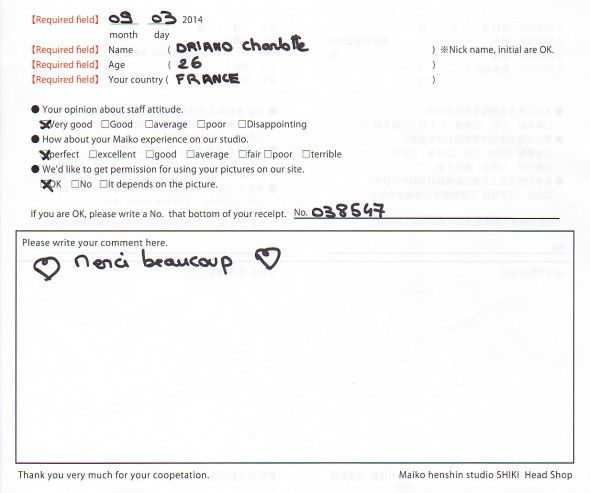 【Required field】 09 03 2014
month day
【Required field】 Name ( DRIANO Charlotte ) ※Nick name, initial are OK.
【Required field】 Age ( 26 )
【Required field】 Your country ( FRANCE )
● Your opinion about staff attitude.
☒Very good □Good □average □poor □Disappointing
● How about your Maiko experience on our studio.
☒perfect □excellent □good □average □fair □poor □terrible
● We'd like to get permission for using your pictures on our site.
☒OK □No □It depends on the picture.
If you are OK, please write a No. that bottom of your receipt. No. 038547
Please write your comment here.
♡ Merci beaucoup ♡
Thank you very much for your coopetation. Maiko henshin studio SHIKI Head Shop